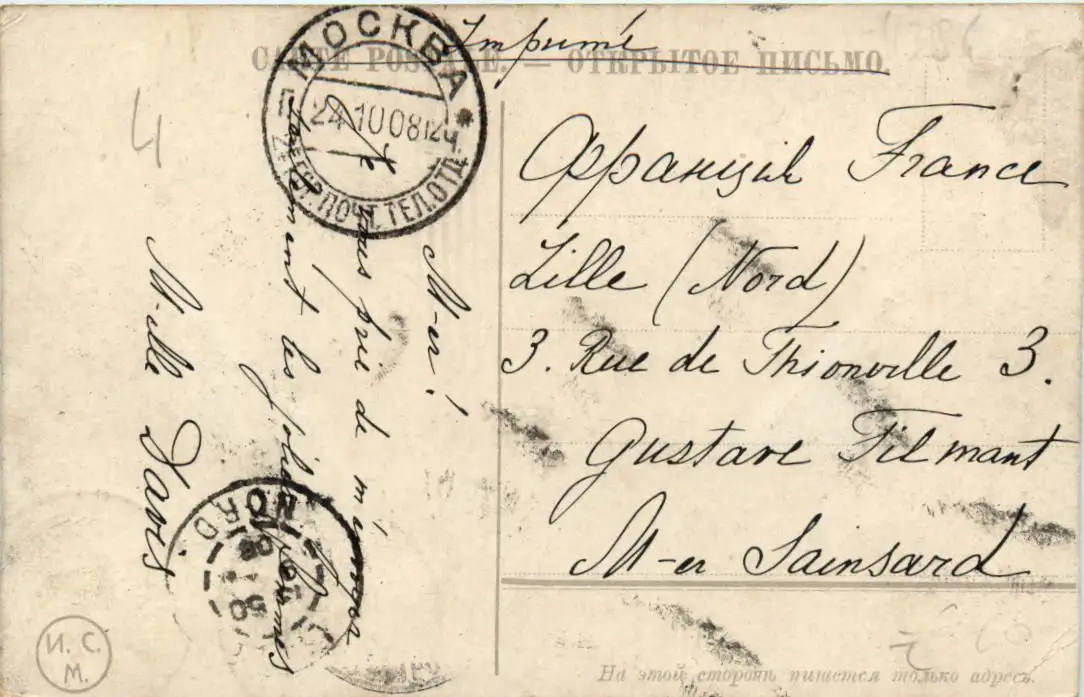 Imprimé
CARTE POSTALE. — ОТКРЫТОЕ ПИСЬМО
МОСКВА
24 10 08 12ч.
ПОЧ. ТЕЛ. ОТД.
4
Франція France
Lille (Nord)
3. Rue de Thionville 3.
Gustave Filmant
M-er Sainsard
M-er!
vous prie de m'
les jolies
M-elle Davis
NORD
И. С.
М.
На этой сторонѣ пишется только адресъ.